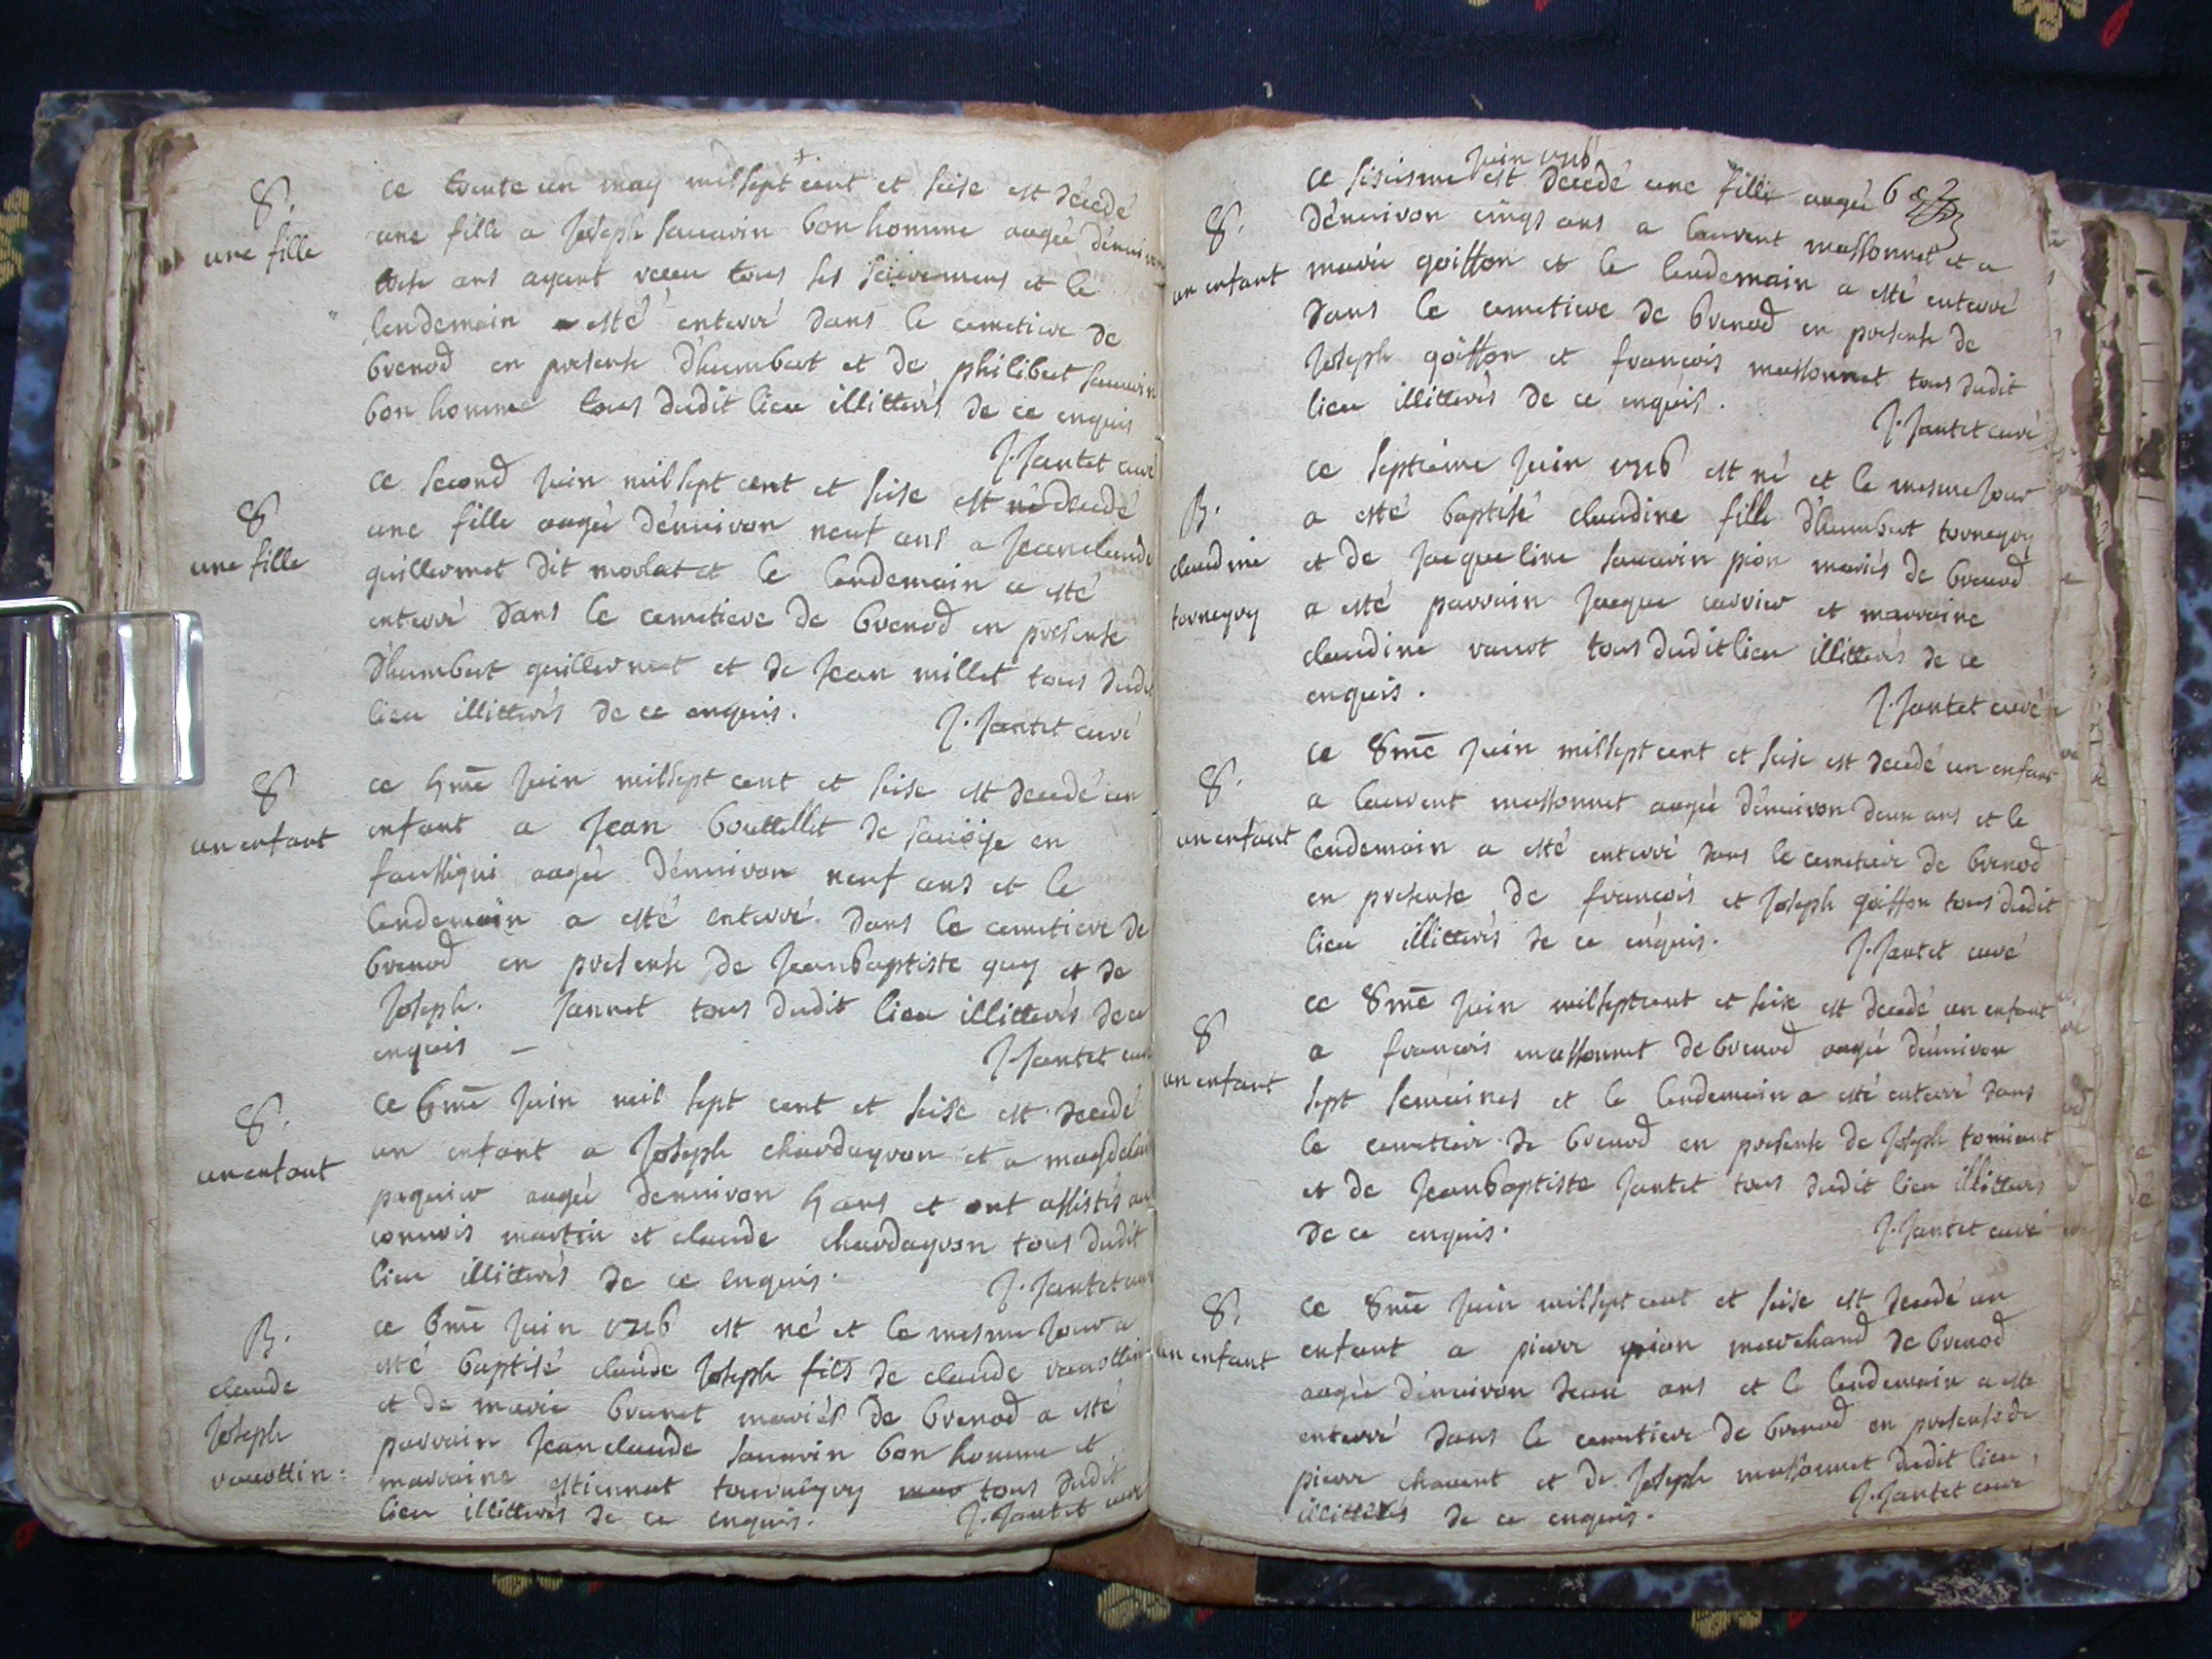 8.
une fille
ce trente un may milsept cent et seise est décédé
une fille a Joseph sauarin bonhomme aagéé dénuiron
trese ans ayant receu tous ses sacremens et le
lendemain a esté enterré dans le cemetiere de
brenod en presense d'humbert et de philibert sauarin
bonhomme tous dudit lieu illitterés de ce enquis
J. Jantet curé
8
une fille
ce second juin milsept cent et seise est né decedé
une fille aagéé dénuiron neuf ans a Jeanclaude
guillermet dit morlat et le lendemain a esté
enterré dans le cemetiere de brenod en presense
d'humbert guillermet et de Jean millet tous dudit
lieu illitterés de ce enquis.
J. Jantet curé
8
un enfant
ce 5me juin milsept cent et seise est decedé un
enfant a Jean bouttellet de sauöÿe en
faussigni aagéé dénuiron neuf ans et le
lendemain a esté enterré dans le cemetiere de
brenod en presense de Jeanbaptiste guy et de
Joseph. Jannet tous dudit lieu illitterés de ce
enquis –
J. Jantet curé
8.
un enfant
ce 6me juin mil sept cent et seise est decedé
un enfant a Joseph chardayron et a magdelaine
paquier aagéé denuiron 5 ans et ont assistés au
conuois martin et claude chardayron tous dudit
lieu illitterés de ce enquis.
J. Jantet curé
B.
claude
Joseph
vauottin:
ce 6me juin 1716 est né et le mesme jour a
esté baptisé claude Joseph fils de claude vauottin
et de marie brunet mariés de brenod a esté
parrain Jeanclaude sauarin bonhomme et
marraine estiennet tous dudit
lieu illitterés de ce enquis.
J. Jantet curé
juin 1716
8.
un enfant
ce sisiesme est decedé une fille aagéé 6
dénuiron cinqs ans a laurent massonnet et a
marie goiffon et le lendemain a esté enterré
dans le cemetiere de brenod en presense de
Joseph goiffon et françois massonnet tous dudit
lieu illitterés de ce enquis.
J. Jantet curé
B.
claudine
torneyry
ce septiéme juin 1716 est né et le mesme jour
a esté baptisé claudine fille d'humbert torneyry
et de Jacqueline sauarin pion mariés de brenod
a esté parrain Jacque carrier et marraine
claudine vauot tous dudit lieu illitterés de ce
enquis.
J. Jantet curé
8.
un enfant
ce 8me juin milsept cent et seise est decedé un enfant
a laurent massonnet aagéé dénuiron deux ans et le
lendemain a esté enterré dans le cemetiere de brenod
en presense de françois et Joseph goiffon tous dudit
lieu illitterés de ce enquis.
J. Jantet curé
8
un enfant
ce 8me juin milseptcent et seise est decedé un enfant
a françois massonnet de brenod aagéé dénuiron
sept semaines et le lendemain a esté enterré dans
le cemetiere de brenod en presense de Joseph
et de Jeanbaptiste Jantet tous dudit lieu illitterés
de ce enquis.
J. Jantet curé
8.
un enfant
ce 8me juin milsept cent et seise est decedé un
enfant a pierre pion marchand de brenod
aagéé dénuiron deux ans et le lendemain a esté
enterré dans le cemetiere de brenod en presense de
pierre chauent et de Joseph massonnet dudit lieu,
illitterés de ce enquis.
J. Jantet curé